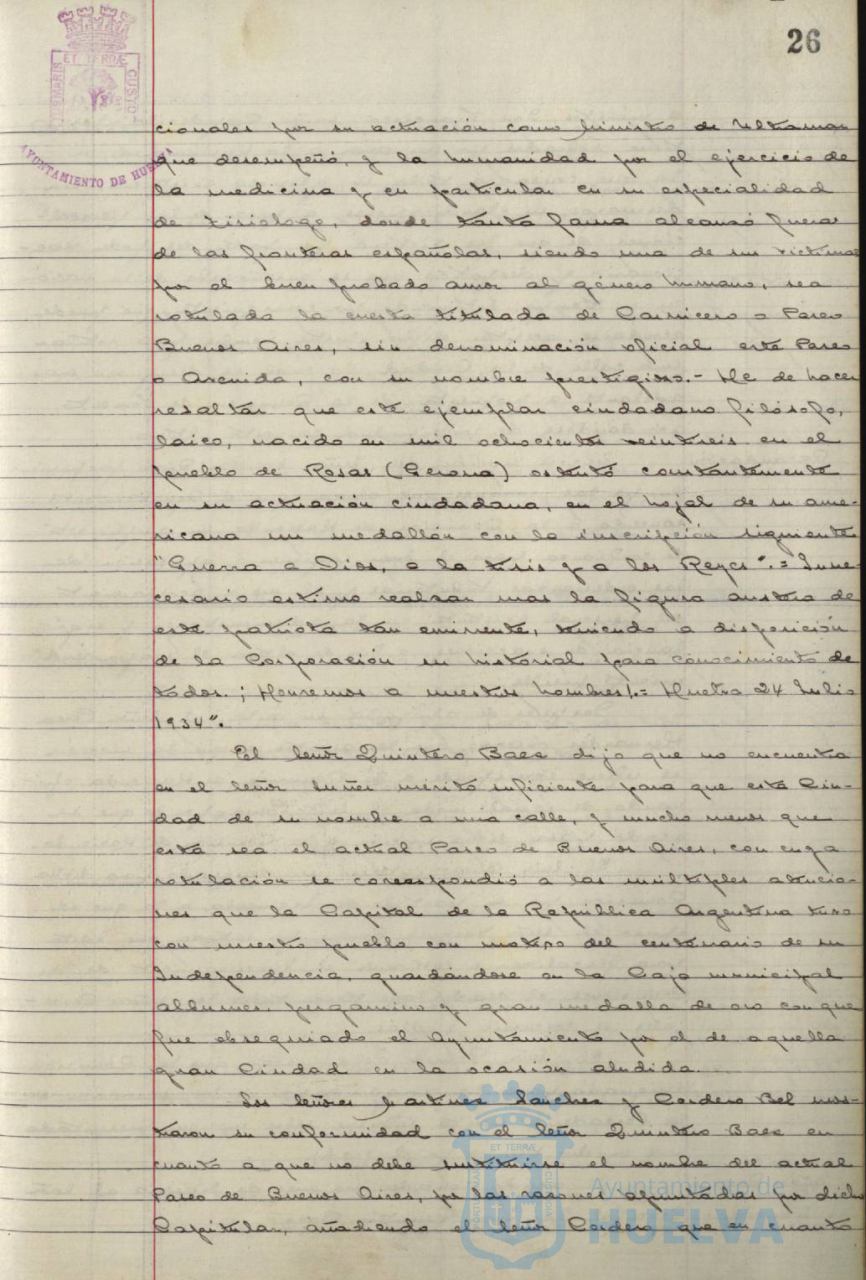 26
ET TERRÆ
AYUNTAMIENTO DE HUELVA
cionales por su actuación como Ministro de Ultramar
que desempeñó, y la humanidad por el ejercicio de
la medicina y en particular en su especialidad
de tisiologo, donde tanta fama alcanzó fuera
de las fronteras españolas, siendo una de sus victimas
por el bien probado amor al género humano, sea
rotulada la cuesta titulada de Carnicero o Paseo
Buenos Aires, sin denominación oficial este Paseo
o Avenida, con su nombre prestigioso.- He de hacer
resaltar que este ejemplar ciudadano filósofo,
laico, nacido en mil ochocientos veintiseis en el
pueblo de Rosas (Gerona) ostentó constantemente
en su actuación ciudadana, en el hojal de su ame-
ricana un medallón con la inscripción siguiente
"Guerra a Dios, a la tisis y a los Reyes".= Inne-
cesario estimo realzar mas la figura austera de
este patriota tan eminente, teniendo a disposición
de la Corporación su historial para conocimiento de
todos. ¡Honremos a nuestros hombres!.= Huelva 24 Julio
1934".
El Señor Quintero Baez dijo que no encuentra
en el Señor Suñer mérito suficiente para que esta Ciu-
dad de su nombre a una calle, y mucho menos que
esta sea el actual Paseo de Buenos Aires, con cuya
rotulación se correspondió a las multiples atencio-
nes que la Capital de la República Argentina tuvo
con nuestro pueblo con motivo del centenario de su
Independencia, guardándose en la Caja municipal
albumes, pergamino y gran medalla de oro con que
fue obsequiado el Ayuntamiento por el de aquella
gran Ciudad en la ocasión aludida.
Los Señores Martinez Sanchez y Cordero Bel mos-
traron su conformidad con el Señor Quintero Baez en
cuanto a que no debe sustituirse el nombre del actual
Paseo de Buenos Aires, por las razones apuntadas por dicho
Capitular, añadiendo el Señor Cordero que en cuanto
ET TERRÆ
Ayuntamiento de
HUELVA